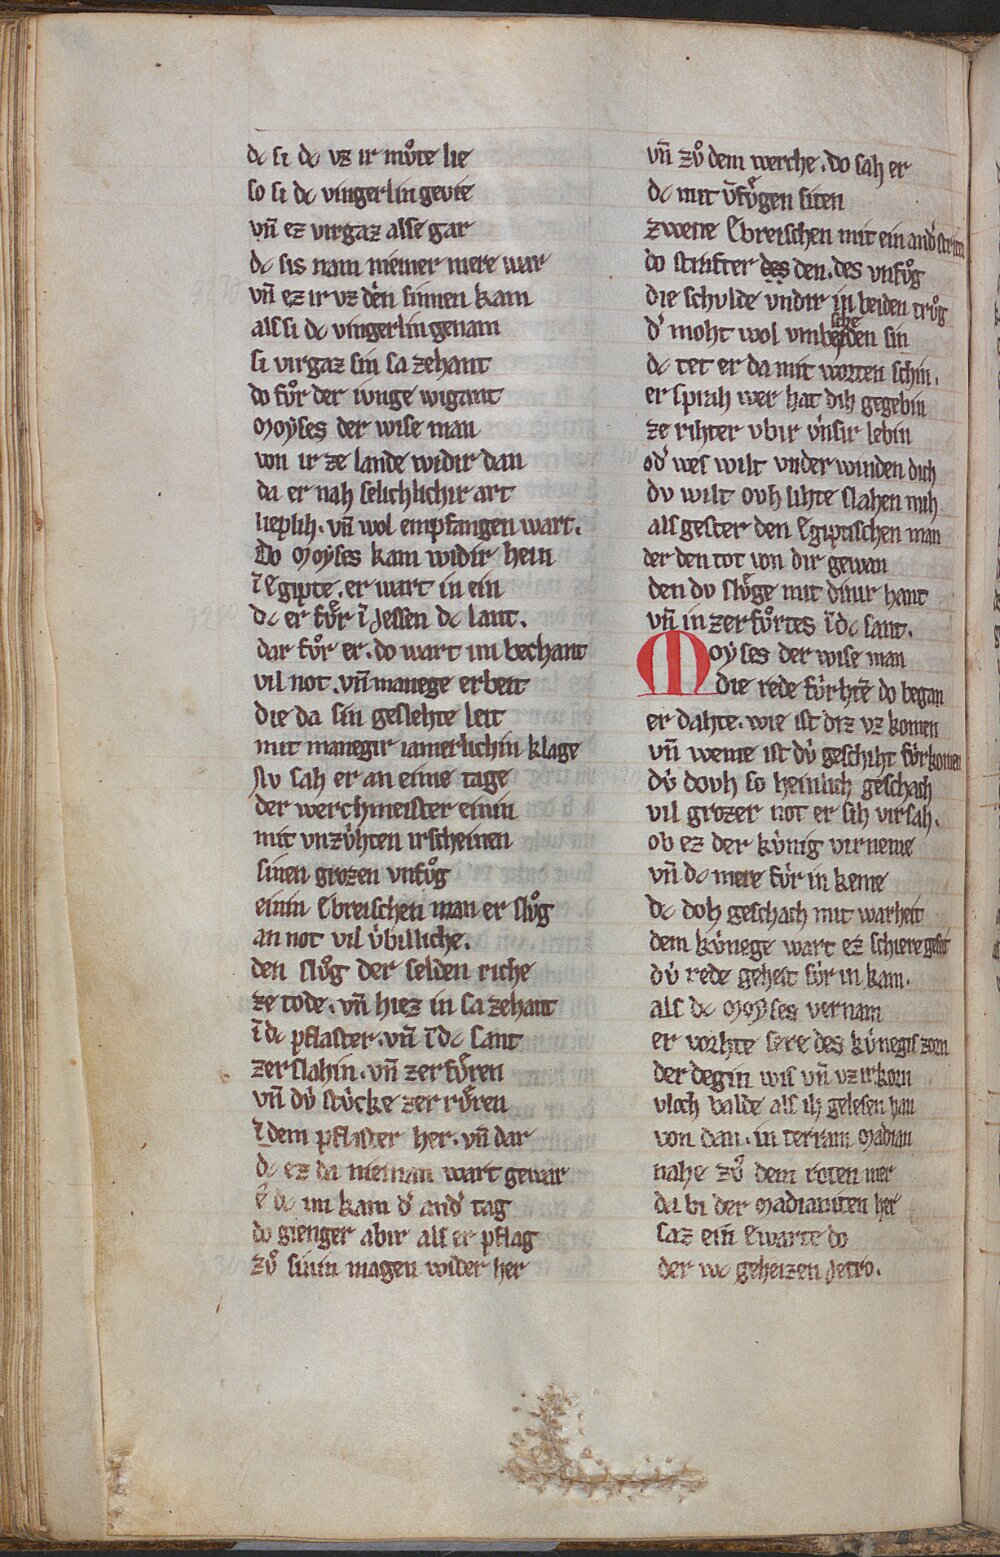 dc si dc vz ir mvͦte lie
so si dc vingerlin gevie
vn̄ ez virgaz alse gar
dc sis nam niemer mere war
vn̄ ez ir vz den sinnen kam
als si dc vingerlin genam
si virgaz sin sa zehant
do fvͦr der ivnge wigant
Moẏses der wise man
von ir ze lande widir dan
da er nah selichlichir art
lieplih. vn̄ wol empfangen wart.
Do Moyses kam widir hein
ī Egipte. er wart in ein
dc er fvͤr ī Jessen dc lant.
dar fvͦr er. do wart im bechant
vil not. vn̄ manege erbeit
die da sin geslehte leit
mit manegir iamerlichin klage
Nv sah er an eime tage
der werchmeister einin
mit vnzv́hten irscheinen
sinen grozen vnfvͦg
einin Ebreischen man er slvͦg
an not vil v́billiche.
den slvͦg der selden riche
ze tode. vn̄ hiez in sa zehant
ī dc pflaster. vn̄ ī dc sant
zerslahin. vn̄ zerfvͤren
vn̄ dv́ stv́cke zerrvͤren
ī dem pflaster her. vn̄ dar
dc ez da nieman wart gewar
ê dc im kam dʼ andʼ tag
do gienger abir als er pflag
zvͦ sinin magen wider her
vn̄ zvͦ dem werche. do sah er
dc mit v̄fvͤgen siten
zwene Ebreischen mit ein andʼ striten
do strafter des den. des vnfvͦg
die schvlde vndir in beiden trvͦg
dʼ moht wol vmbescheiden sin
dc tet er da mit worten schin.
er sprah wer hat dih gegebin
ze rihter vbir v́nsir lebin
odʼ wes wilt vnder winden dich
dv wilt ovh lihte slahen mih
als gester den Egiptischen man
der den tot von dir gewan
den dv slvͤge mit dinir hant
vn̄ in zerfvͦrtes ī dc sant.
Moẏses der wise man
die rede fv́rhtē do began
er dahte. wie ist diz vz komen
vn̄ weme ist dv́ geschiht fv́rkomen
dv́ dovh so heinlich geschach
vil grozer not er sih virsah.
ob ez der kv́nig virneme
vn̄ dc mere fv́r in keme
dc doh geschach mit warheit
dem kv́nege wart ez schiere geseit
dv́ rede geheit fv́r in kam.
als dc Moẏses vernam
er vorhte sere des kv́negis zorn
der degin wis vn̄ vz irkorn
vloch balde als ih gelesen han
von dan. in terram Madian
nahe zvͦ dem roten mer
da bi der Madianiten her
saz ein Ewarte do
der wc geheizen Jetro.